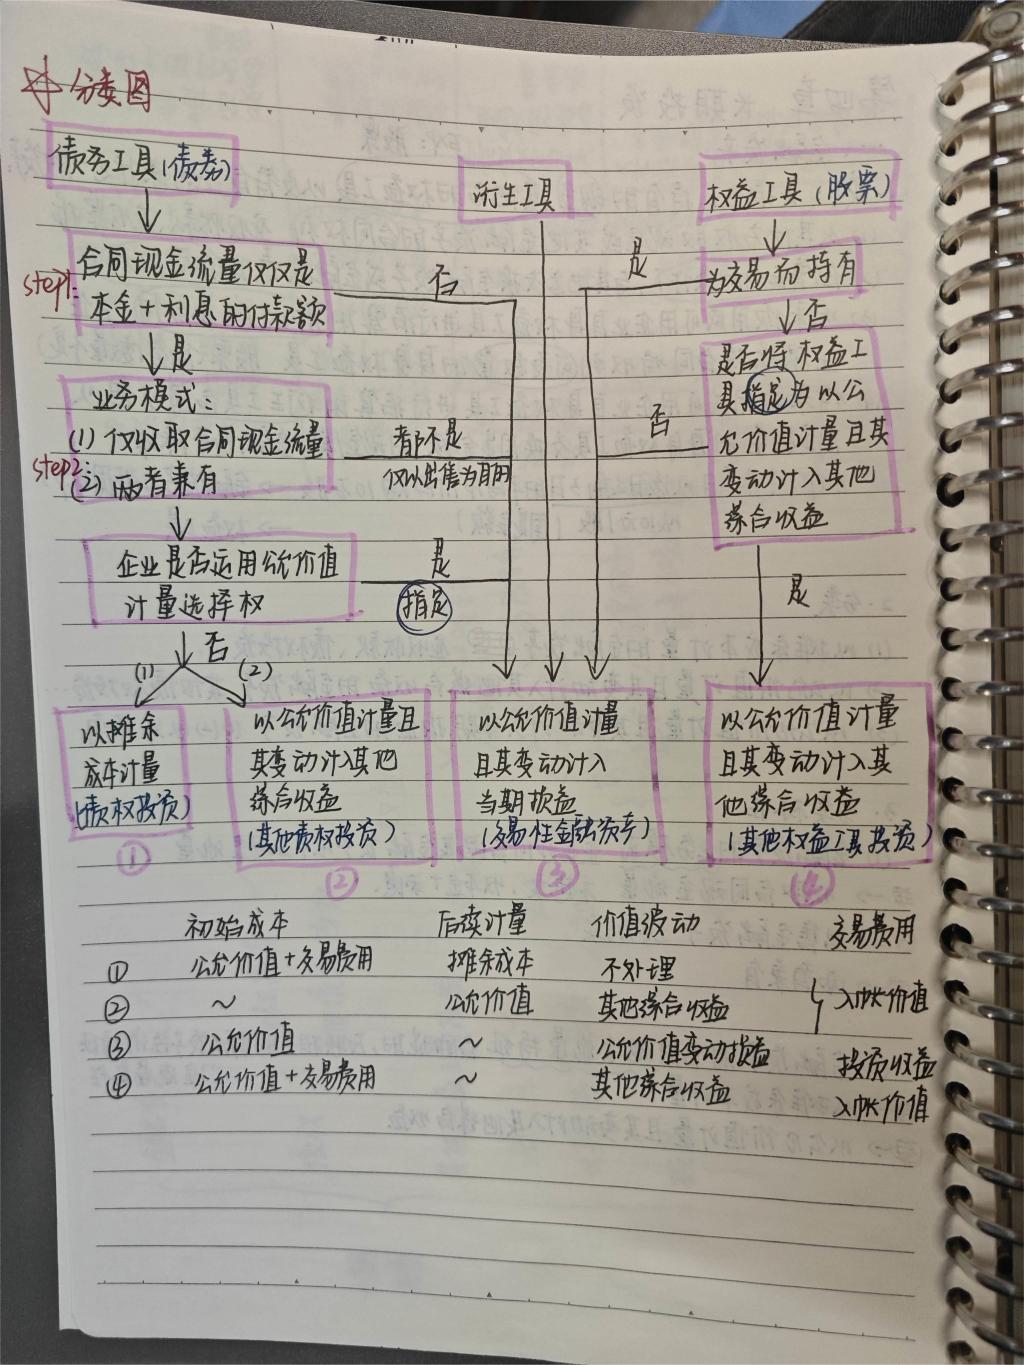 ☆ 分类图
债务工具(债券)
衍生工具
权益工具(股票)
step1:
合同现金流量仅仅是
本金+利息的付款额
否
是
为交易而持有
是
否
业务模式:
(1) 仅收取合同现金流量
step2:
(2) 两者兼有
都不是
仅以出售为目的
否
是否将权益工
具指定为以公
允价值计量且其
变动计入其他
综合收益
企业是否运用公允价值
计量选择权
是
指定
是
否
(1)
(2)
以摊余
成本计量
(债权投资)
①
以公允价值计量且
其变动计入其他
综合收益
(其他债权投资)
②
以公允价值计量
且其变动计入
当期损益
(交易性金融资产)
③
以公允价值计量
且其变动计入其
他综合收益
(其他权益工具投资)
④
初始成本 后续计量 价值波动 交易费用
① 公允价值+交易费用 摊余成本 不处理
② ~ 公允价值 其他综合收益 入帐价值
③ 公允价值 ~ 公允价值变动损益 投资收益
④ 公允价值+交易费用 ~ 其他综合收益 入帐价值